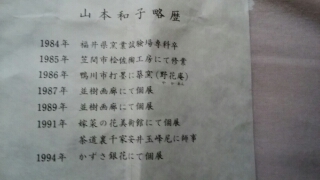 山本和子略歴
1984年 福井県窯業試験場専科卒
1985年 笠間市桧佐陶工房にて修業
1986年 鴨川市打墨に築窯(野花庵)
1987年 並樹画廊にて個展
1989年 並樹画廊にて個展
1991年 嫁菜の花美術館にて個展
茶道裏千家安井玉峰尼に師事
1994年 かずさ銀花にて個展